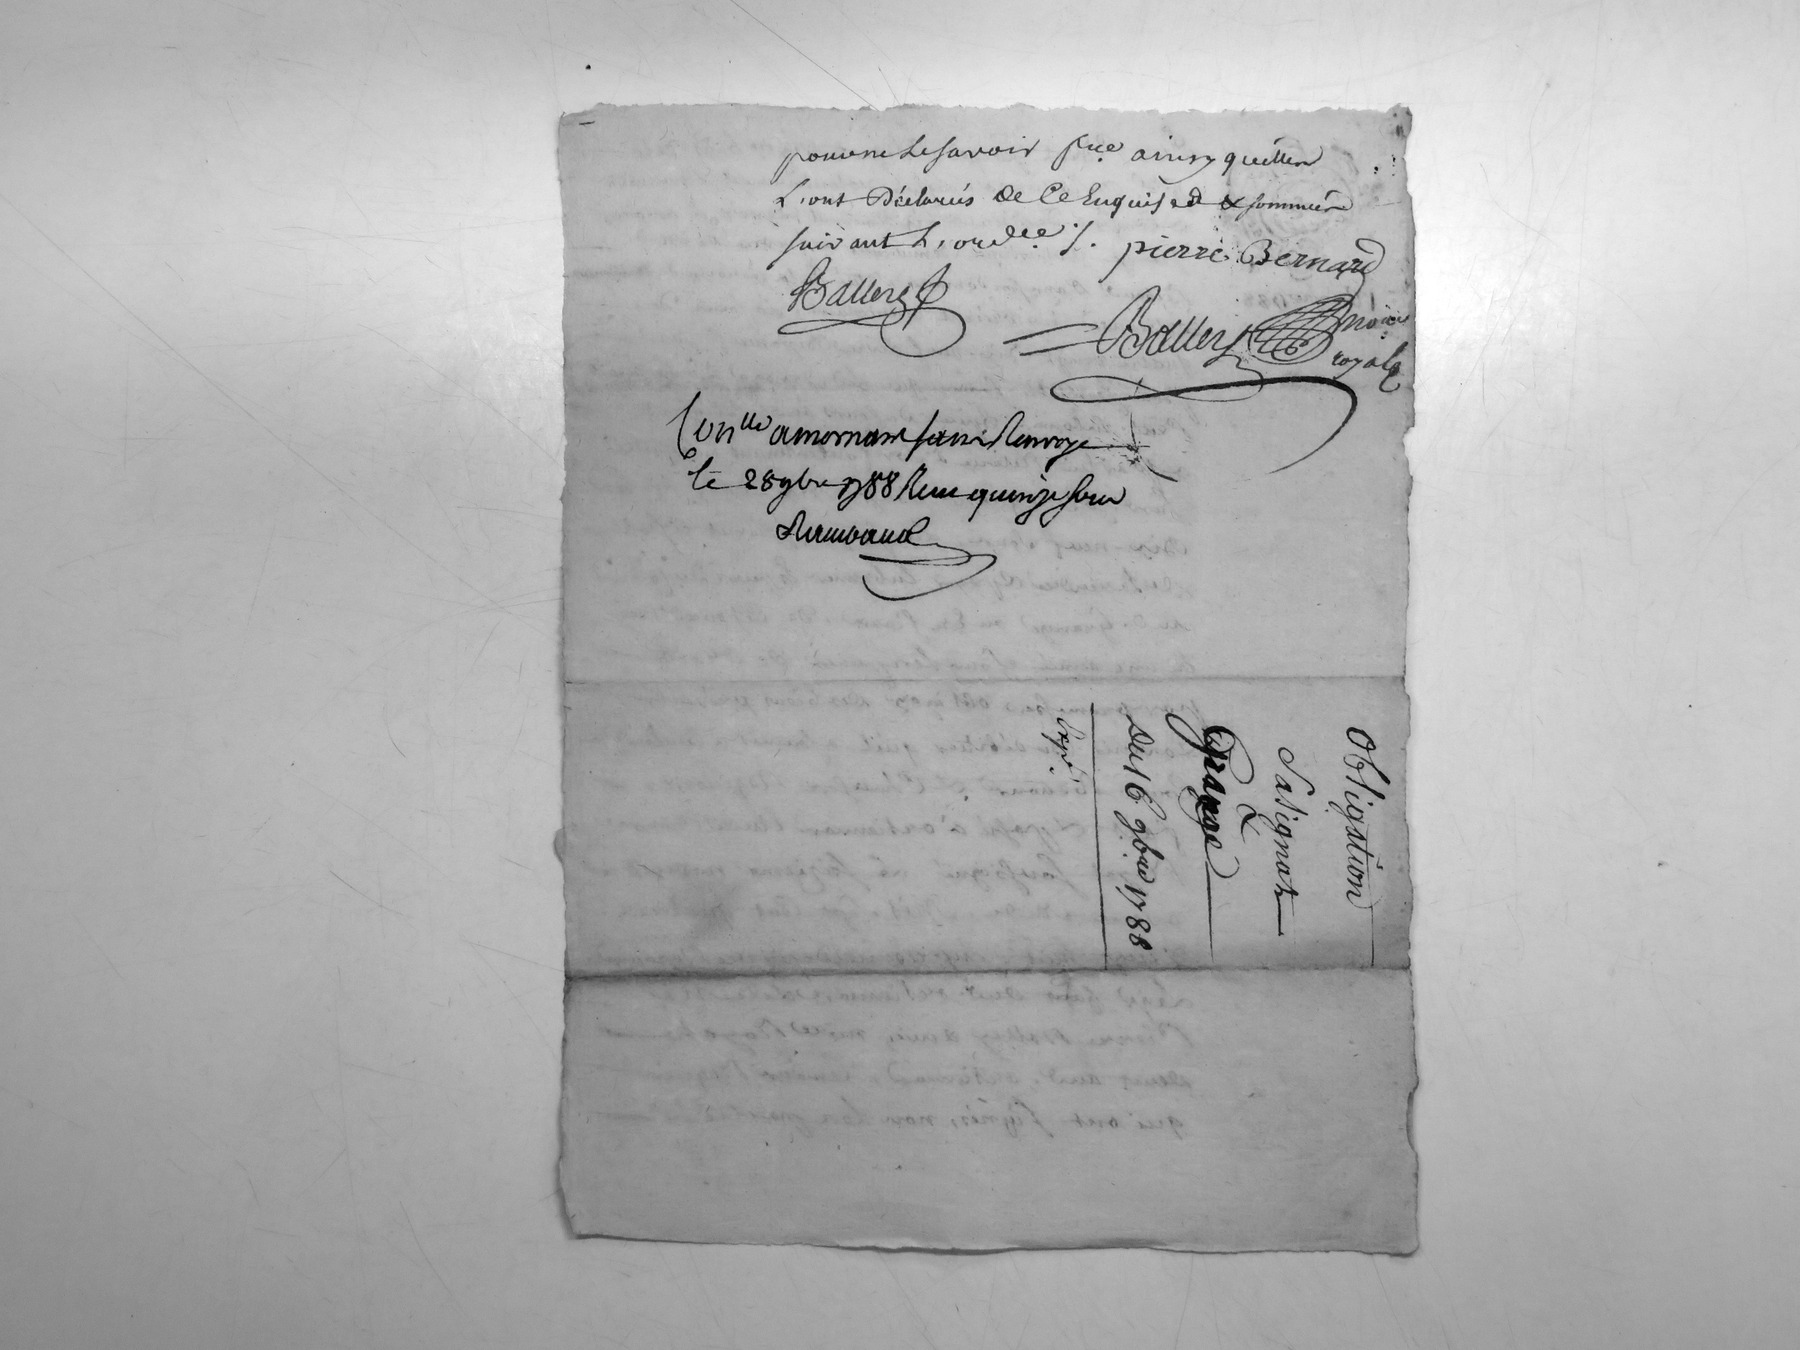 pour ne le savoir fre ainsy quilles
L'ont Déclarés de Ce Enquis ed & sommées
suivant L'ordce /. pierre Bernard
Ballery
Ballery noire
royal
Conllé a mornant sans Renvoye
le 28 9bre 1788 Recu quinze sous
Rambaud
Obligation
Sasignat
&
Grange
Du 16 9bre 1788
Expé.